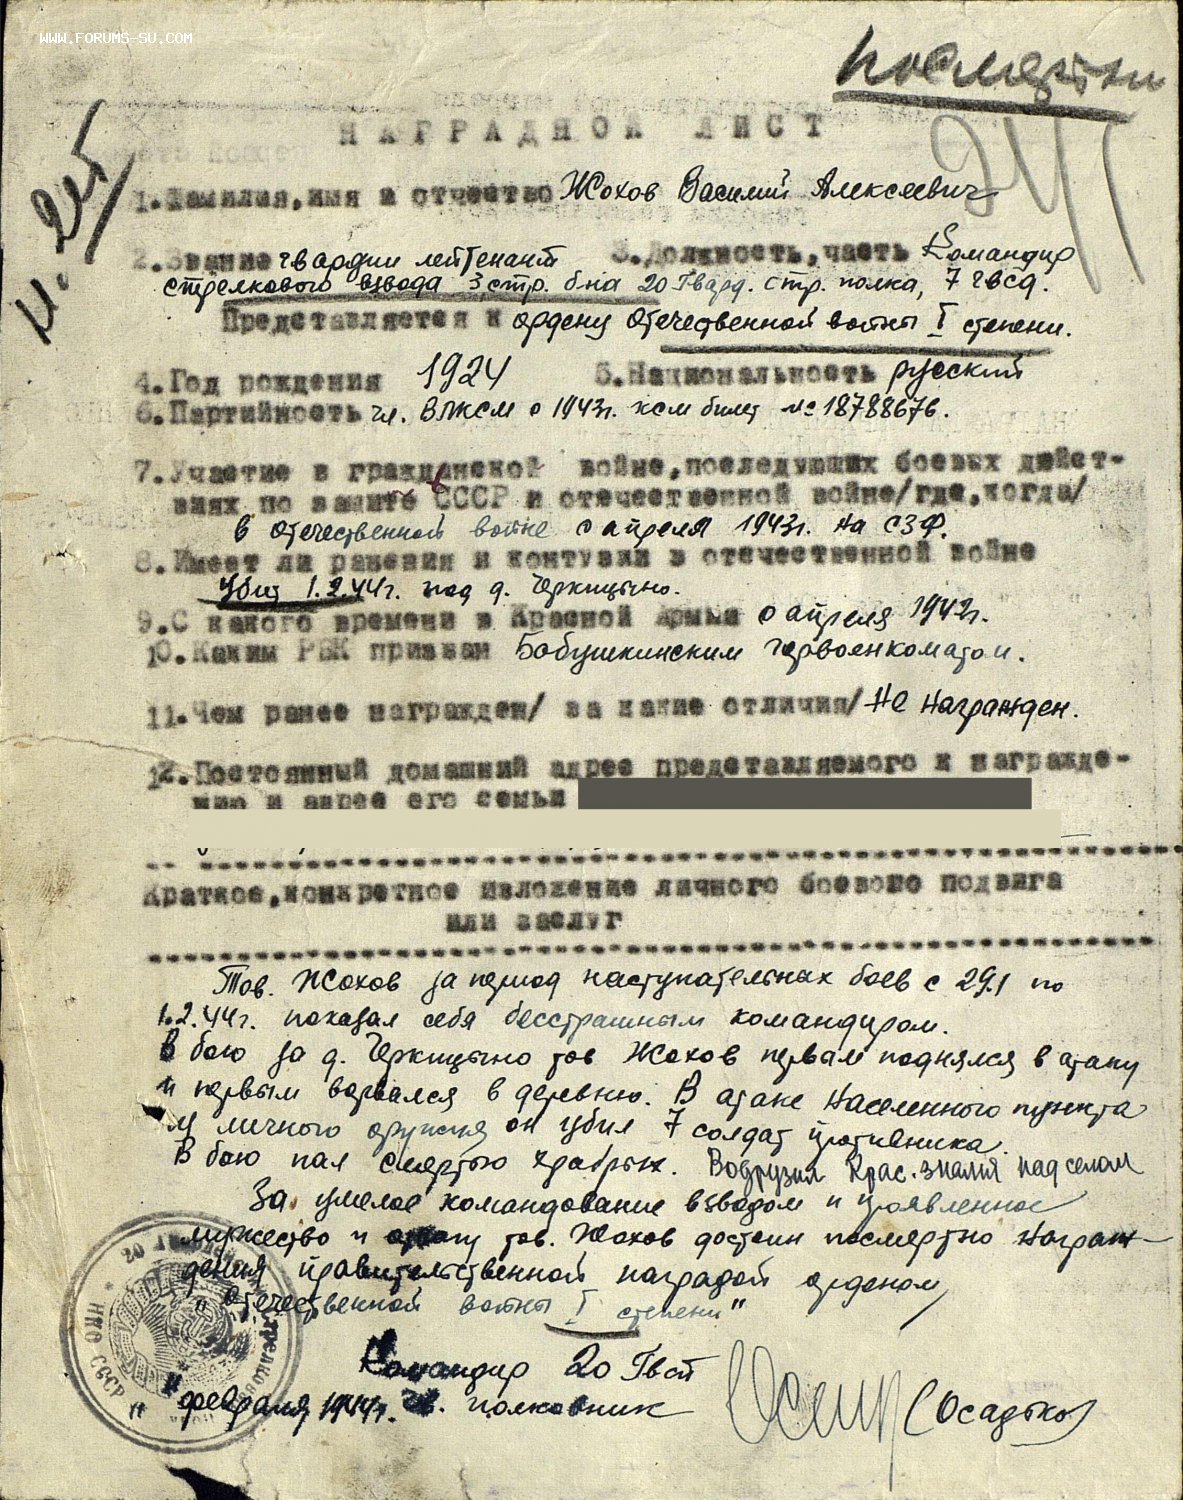 WWW.FORUMS-SU.COM
посмертно
НАГРАДНОЙ ЛИСТ
1.Фамилия,имя и отчество Жохов Василий Алексеевич
2.Звание гвардии лейтенант 3.Должность,часть Командир
стрелкового взвода 3 стр. б-на 20 Гвард. стр. полка, 7 гвсд.
Представляется к ордену отечественной войны I степени.
4.Год рождения 1924 5.Национальность русский
6.Партийность чл. ВЛКСМ с 1943г. ксм билет №18788676.
7.Участие в гражданской войне,последующих боевых дейст-
виях по защите СССР и отечественной войне/где,когда/
в отечественной войне с апреля 1943г. на СЗФ.
8.Имеет ли ранения и контузии в отечественной войне
Убит 1.2.44г. под д. Черкицыно.
9.С какого времени в Красной Армии с апреля 1942г.
10.Каким РВК призван Бабушкинским горвоенкоматом.
11.Чем ранее награжден/ за какие отличия/ Не награжден.
12.Постоянный домашний адрес представляемого к награжде-
нию и адрес его семьи
Краткое,конкретное изложение личного боевого подвига
или заслуг
Тов. Жохов за период наступательных боев с 29.1 по
1.2.44г. показал себя бесстрашным командиром.
В бою за д. Черкицыно тов Жохов первым поднялся в атаку
и первым ворвался в деревню. В атаке населенного пункта
из личного оружия он убил 7 солдат противника.
В бою пал смертью храбрых. Водрузил Крас. знамя над селом
За умелое командование взводом и проявленное
мужество и отвагу тов. Жохов достоин посмертно награж-
дения правительственной наградой орденом
"Отечественной войны I степени"
Командир 20 Гвсп
" " февраля 1944г. гв. полковник (Осадько)
НКО СССР